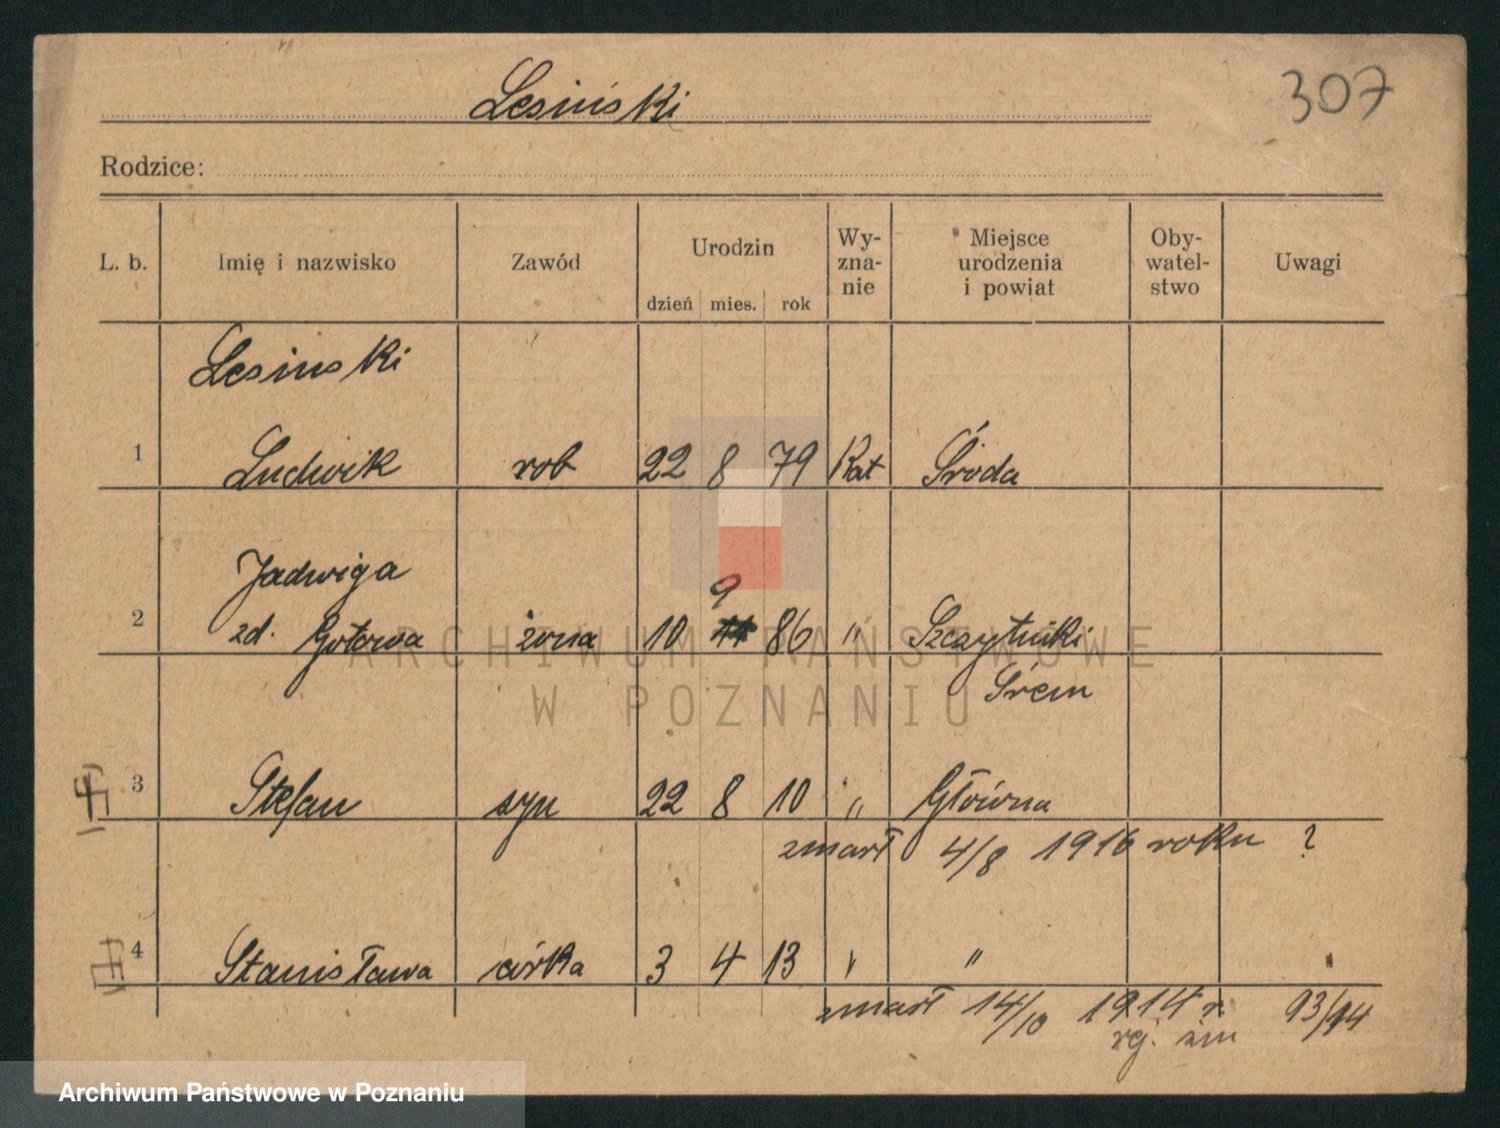 Lesiński
307
Rodzice:
L. b. Imię i nazwisko Zawód Urodzin dzień mies. rok Wy-zna-nie Miejsce urodzenia i powiat Oby-watel-stwo Uwagi
Lesinski
1 Ludwik rob 22 8 79 Kat Środa
Jadwiga 9
2 zd. Gotowa żona 10 86 " Szczytniki
Śrem
3 Stefan syn 22 8 10 " Główna
zmarł 4/8 1916 roku ?
4 Stanisława córka 3 4 13 " "
zmarł 14/10 1914 r 93/14
rej. zm
ARCHIWUM PAŃSTWOWE
W POZNANIU
Archiwum Państwowe w Poznaniu